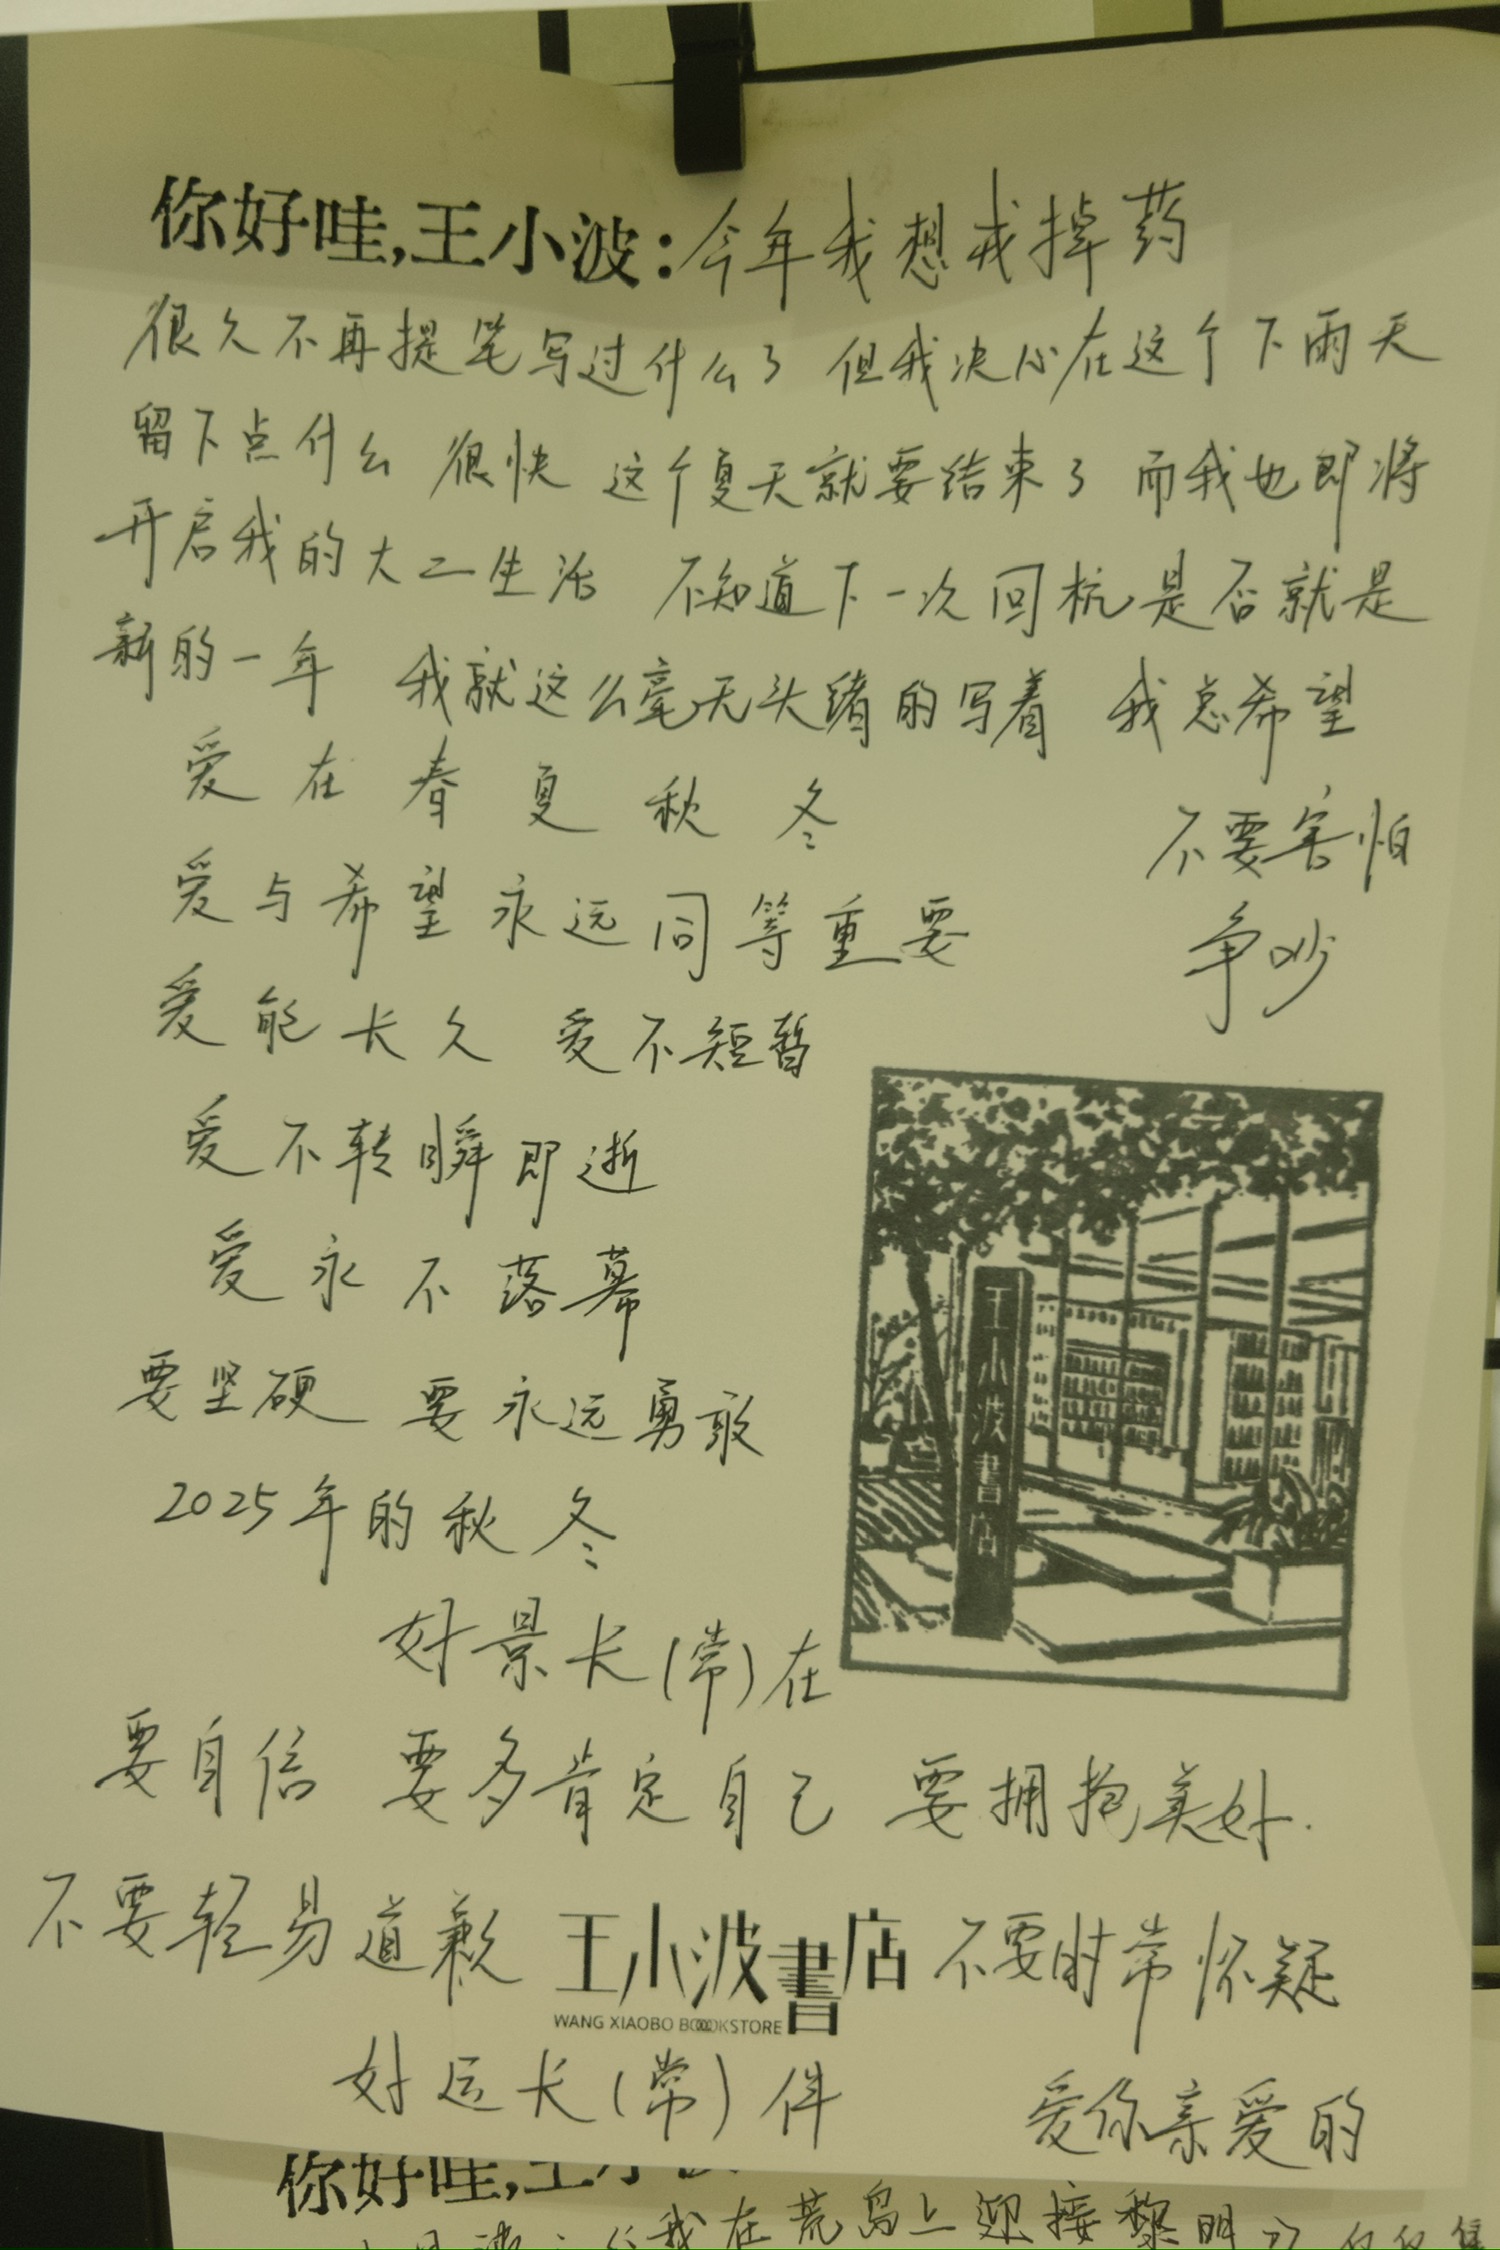 你好哇,王小波:今年我想戒掉药
很久不再提笔写过什么了 但我决心在这个下雨天
留下点什么 很快 这个夏天就要结束了 而我也即将
开启我的大二生活 不知道下一次回杭是否就是
新的一年 我就这么毫无头绪的写着 我总希望
爱在春夏秋冬
不要害怕
爱与希望永远同等重要
争吵
爱能长久 爱不短暂
爱不转瞬即逝
爱永不落幕
王小波書店
要坚硬 要永远勇敢
2025年的秋冬
好景长(常)在
要自信 要多肯定自己 要拥抱美好.
不要轻易道歉 王小波書店 不要时常怀疑
WANG XIAOBO BOOKSTORE
好运长(常)伴
爱你亲爱的
你好哇,王小
我在荒岛上迎接黎明